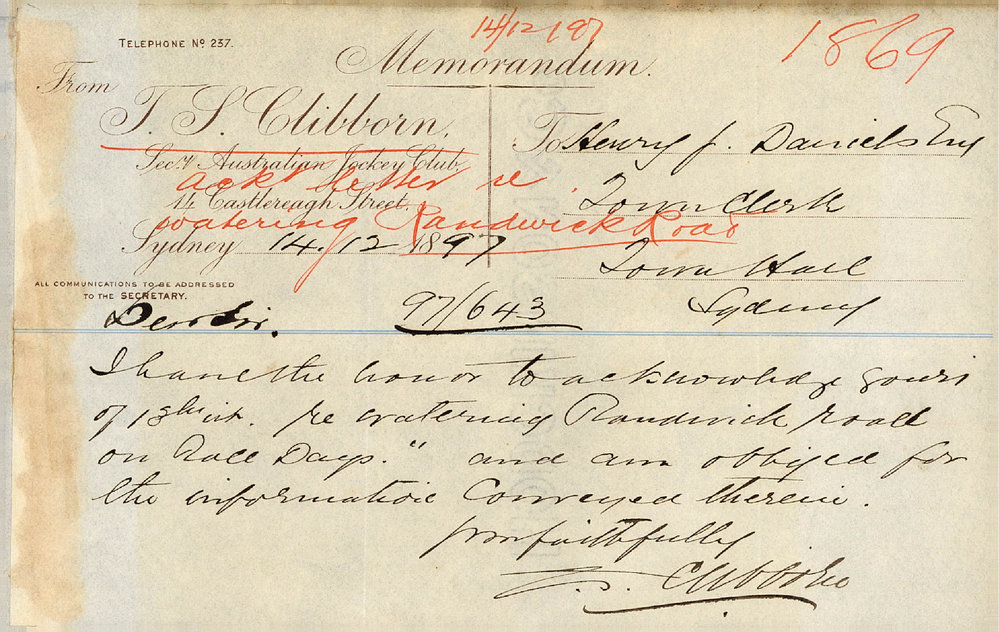 14/12/97
1869
TELEPHONE No 237.
Memorandum.
From
T. S. Clibborn,
Secy Australian Jockey Club,
14 Castlereagh Street,
Sydney 14.12 1897
Ack letter re
watering Randwick Road
ALL COMMUNICATIONS TO BE ADDRESSED
TO THE SECRETARY.
To Henry J. Daniels Esq
Town Clerk
Town Hall
Sydney
Dear Sir.
97/643
I have the honor to acknowledge yours
of 13th inst. re watering Randwick road
on Race Days." and am obliged for
the information conveyed therein.
yours faithfully
T. S. Clibborn